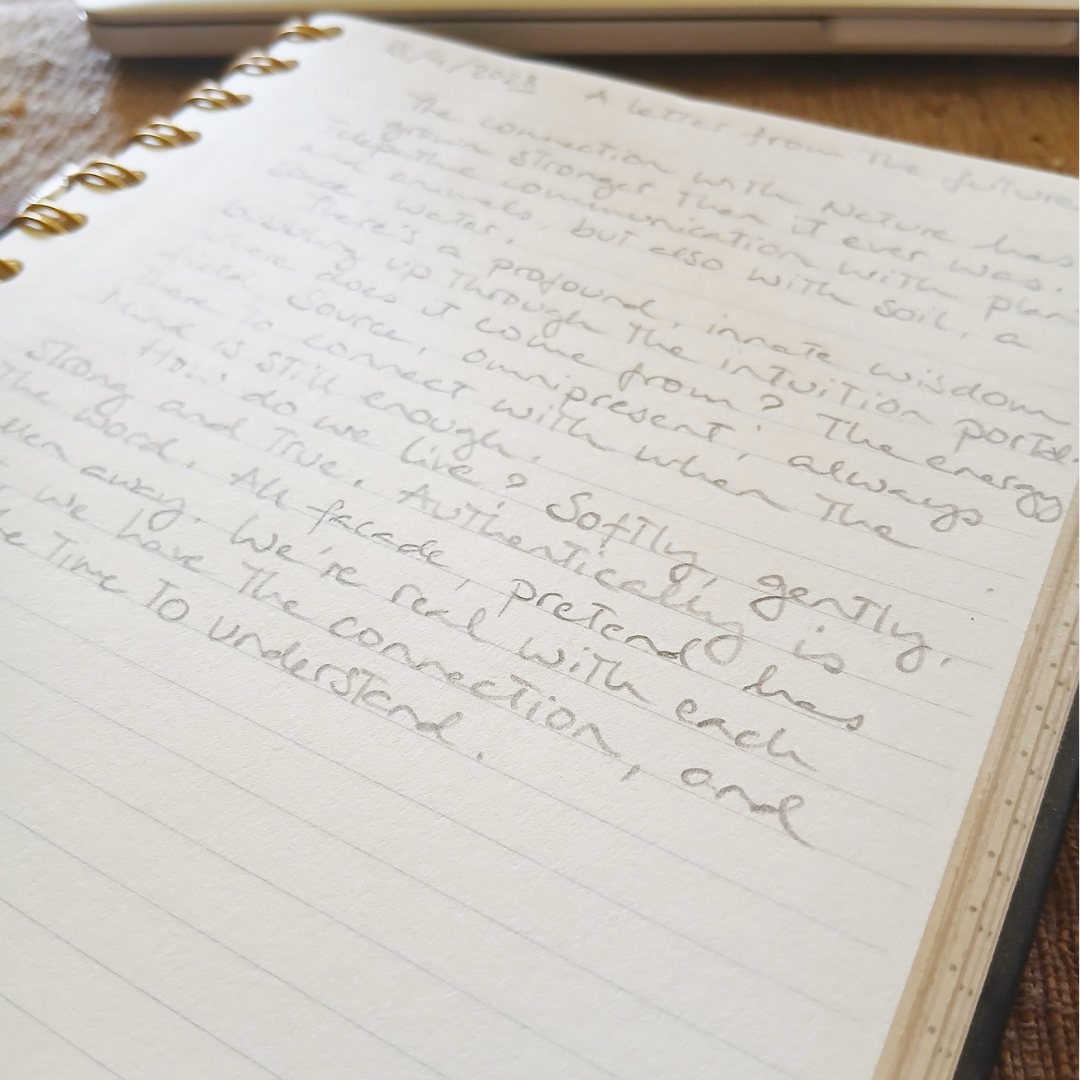 /2023 A letter from the future
The connection with Nature has
grown stronger than it ever was.
Telepathic communication with plan
and animals, but also with soil, a
water.
There's a profound, innate wisdom
up through the intuition portal.
Where does it come from? The energy
Source, omnipresent, always
here to connect with when the
Mind is still enough.
How do we live? Softly, gently,
strong and true. Authentically is
the word. All facade, pretend has
away. We're real with each
we have the connection, and
Time to understand.